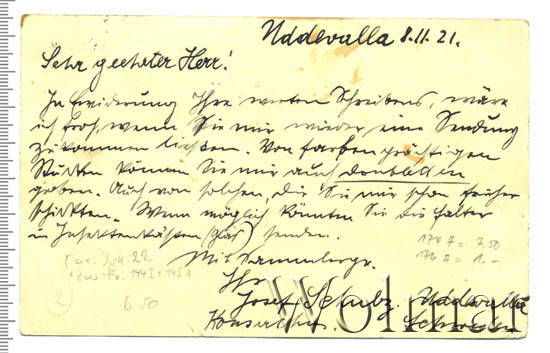 Uddevalla 8.11.21.
Sehr geehrter Herr!
In Erwiderung Ihres werten Schreibens, wäre
ich froh, wenn Sie mir wieder eine Sendung
zukommen ließen. Von farbenprächtigen
Stücken können Sie mir auch doubletten
geben. Auch von solchen, die Sie mir schon früher
schickten. Wenn möglich könnten Sie die Falter
in Insektenkästen (Glas) senden.
Mit Sammlergr.
Ihr
Josef Schulz. Uddevalla
Schweden
174 A = 2.50
76 A = 1.-
22
144I + 145A
2
6.50
Wolmar